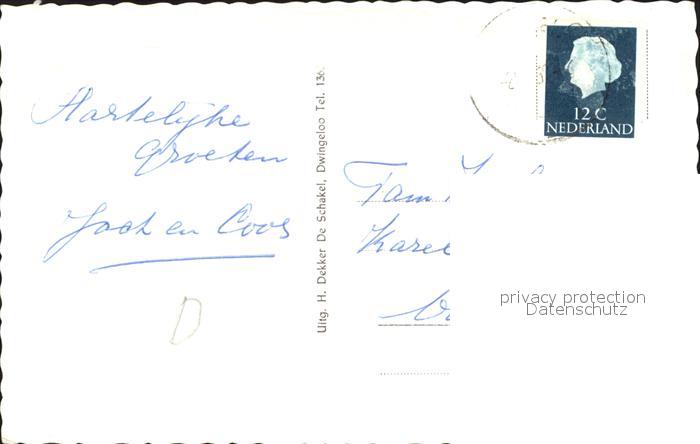 Hartelijke
Groeten
Jook en Coos
D
Uitg. H. Dekker De Schakel, Dwingeloo Tel. 136
12 C
NEDERLAND
Fam
Karel
privacy protection
Datenschutz